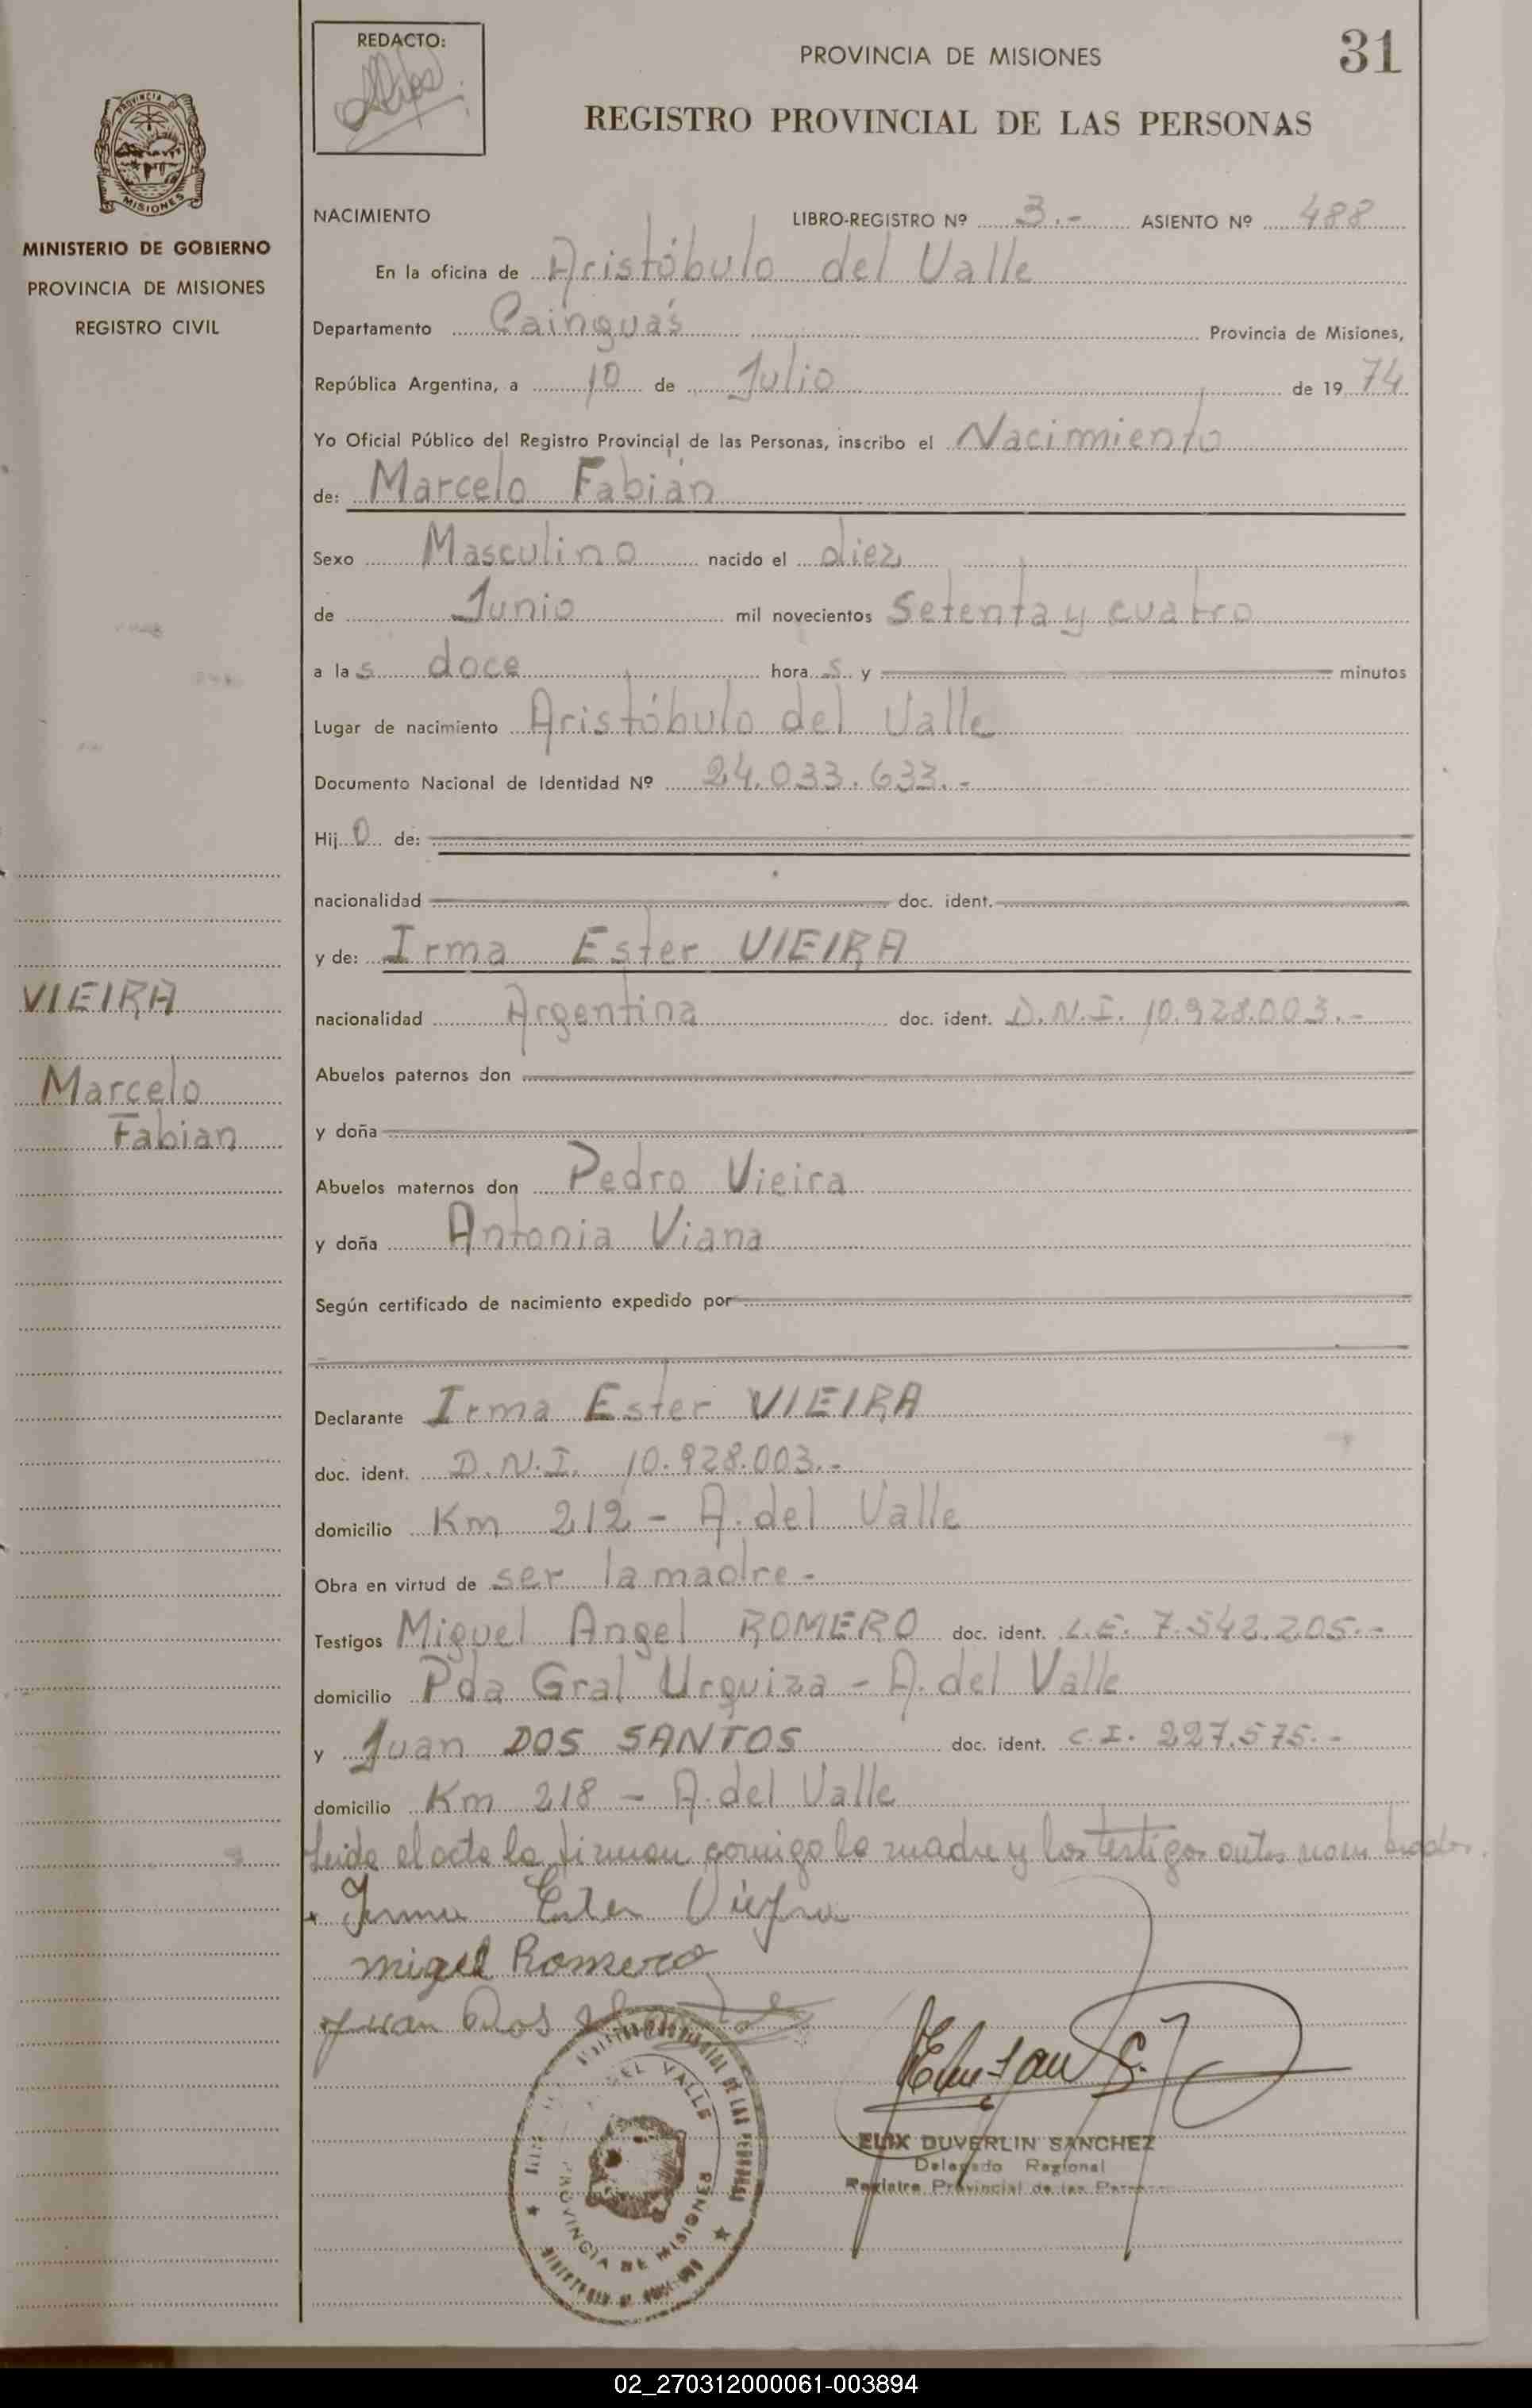 REDACTO:
PROVINCIA DE MISIONES
31
REGISTRO PROVINCIAL DE LAS PERSONAS
PROVINCIA
MISIONES
MINISTERIO DE GOBIERNO
PROVINCIA DE MISIONES
REGISTRO CIVIL
NACIMIENTO LIBRO-REGISTRO Nº 3.- ASIENTO Nº 488
En la oficina de Aristóbulo del Valle
Departamento Cainguás Provincia de Misiones,
República Argentina, a 10 de Julio de 19 74
Yo Oficial Público del Registro Provincial de las Personas, inscribo el Nacimiento
de: Marcelo Fabián
Sexo Masculino nacido el diez
de Junio mil novecientos Setenta y cuatro
a las doce horas y minutos
Lugar de nacimiento Aristóbulo del Valle
Documento Nacional de Identidad Nº 24.033.633.-
Hijo de:
nacionalidad doc. ident.
y de: Irma Ester VIEIRA
VIEIRA
nacionalidad Argentina doc. ident. D.N.I. 10.928.003.-
Abuelos paternos don
Marcelo
Fabian
y doña
Abuelos maternos don Pedro Vieira
y doña Antonia Viana
Según certificado de nacimiento expedido por
Declarante Irma Ester VIEIRA
doc. ident. D.N.I. 10.928.003.-
domicilio Km 212 - A. del Valle
Obra en virtud de ser la madre-
Testigos Miguel Angel ROMERO doc. ident. L.E. 7.542.205.-
domicilio Pda Gral Urquiza - A. del Valle
y Juan DOS SANTOS doc. ident. C.I. 227.575.-
domicilio Km 218 - A. del Valle
Leida el acta la firman comigo la madre y los testigos antes nombrados.
Irma Ester
migel Romero
Juan Dos
DEL VALLE
PROVINCIA DE MISIONES
ELIX DUVERLIN SANCHEZ
Delegado Regional
Registro Provincial de las
02_270312000061-003894